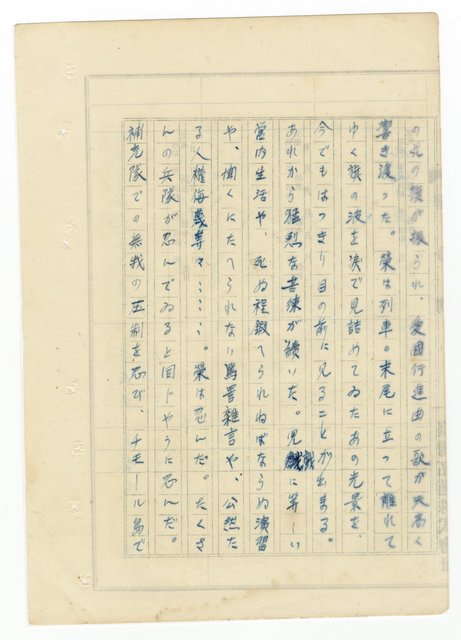 の丸の旗が振られ、愛国行進曲の歌が天高く
響き渡つた。榮は列車の末尾に立つて離れて
ゆく旗の波を涙で見詰めてゐたあの光景を、
今でもはつきり目の前に見ることが出来る。
あれから猛烈な苦練が続いた。児戯に等しい
営内生活や、死ぬ程鍛へられねばならぬ演習
や、聞くにたへられない罵詈雑言や、公然た
る人権侮蔑等々……。榮は忍んだ。たくさ
んの兵隊が忍んでゐると同じやうに忍んだ。
補充隊での無我の圧制を忍び、チモール島で